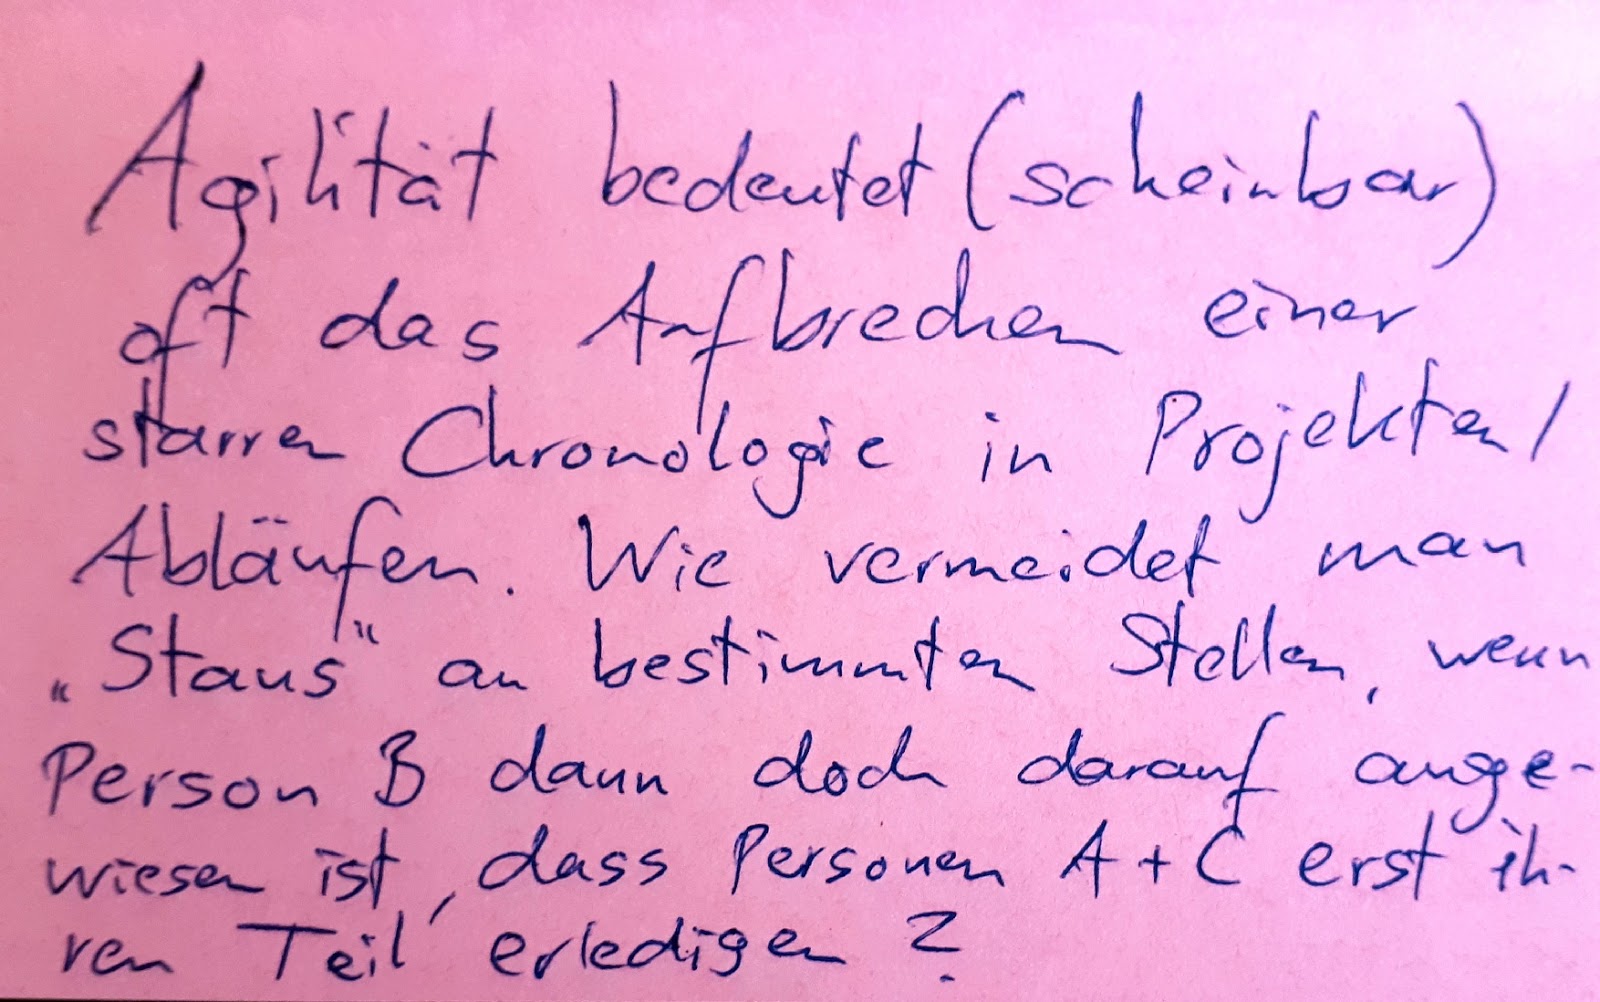 Agilität bedeutet (scheinbar)
oft das Aufbrechen einer
starren Chronologie in Projekten/
Abläufen. Wie vermeidet man
„Staus“ an bestimmten Stellen, wenn
Person B dann doch darauf ange-
wiesen ist, dass Personen A + C erst ih-
ren Teil erledigen?